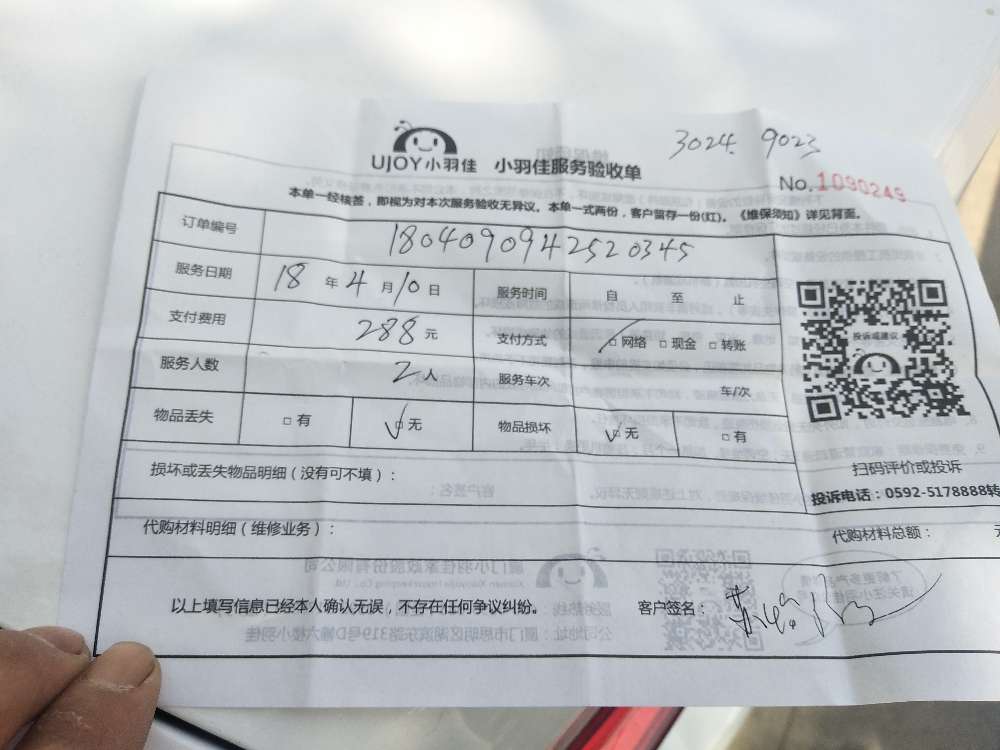 3024. 9023
UJOY小羽佳 小羽佳服务验收单
No.1090249
本单一经核签，即视为对本次服务验收无异议。本单一式两份，客户留存一份(红)。《维保须知》详见背面。
订单编号 1804090942520345
服务日期 18 年 4 月 10 日 服务时间 自 至 止
支付费用 288 元 支付方式 ☑网络 □现金 □转账
服务人数 2人 服务车次 车/次
物品丢失 □有 ☑无 物品损坏 ☑无 □有
投诉或建议
扫码评价或投诉
投诉电话：0592-5178888转
损坏或丢失物品明细（没有可不填）：
代购材料明细（维修业务）： 代购材料总额： 元
以上填写信息已经本人确认无误，不存在任何争议纠纷。 客户签名：